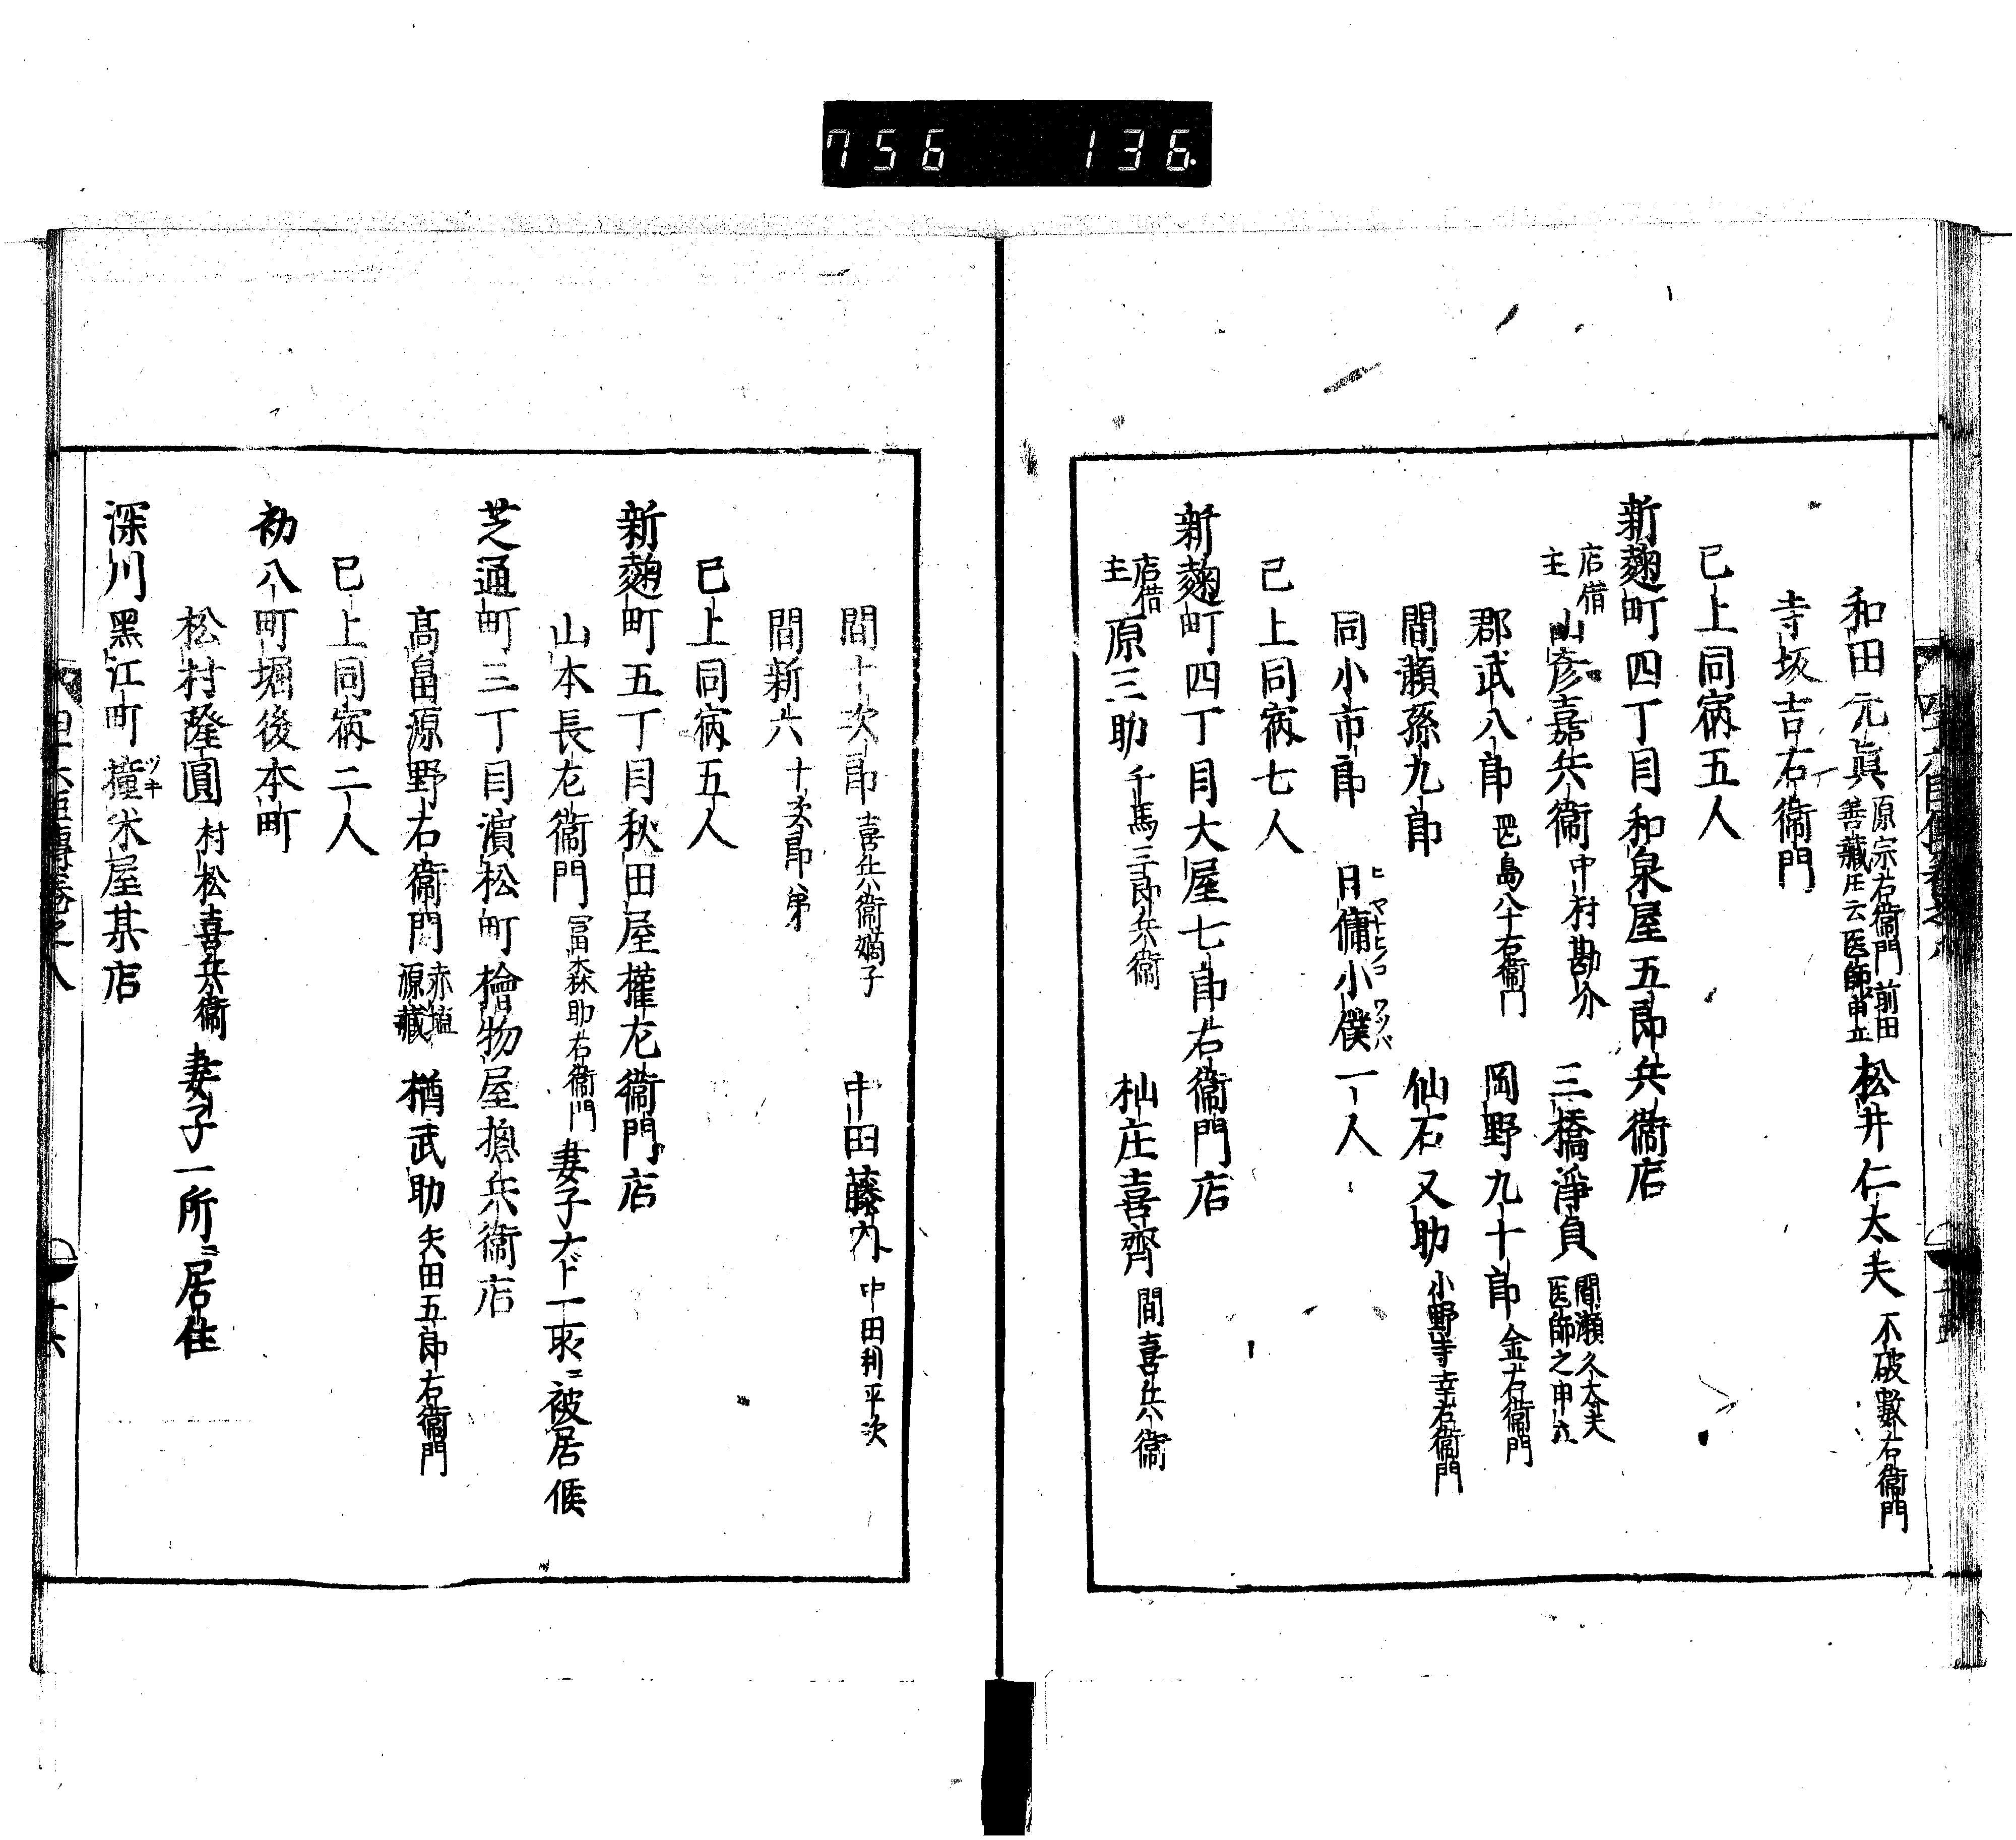 756 136.
和田元眞 原宗右衞門前田善藏圧云医師申立 松井仁太夫 不破數右衞門
寺坂吉右衞門
已上同宿五人
新麹町四丁目和泉屋五郎兵衞店
店借主 山彦嘉兵衞 中村勘介 三橋淨貞 間瀬久太夫医師之申立
郡武八郎 毘島八十右衞門 岡野九十郎 金右衞門
間瀬孫九郎 仙石又助 小野寺幸右衞門
同小市郎 日傭小僕一人
已上同宿七人
新麹町四丁目大屋七郎右衞門店
店借主 原三助 千馬三郎兵衞 杣庄喜齊 間喜兵衞
間十次郎 喜兵衞嫡子 中田藤内 中田利平次
間新六 十次郎弟
已上同宿五人
新麹町五丁目秋田屋權左衞門店
山本長左衞門 冨森助右衞門 妻子ナド一所ニ被居候
芝通町三丁目濵松町檜物屋惣兵衞店
髙畠源野右衞門 赤埴源藏 楢武助 矢田五郎右衞門
已上同宿二人
八町堀後本町
松村隆圓 村松喜兵衞 妻子一所ニ居住
深川黑江町撞米屋某店